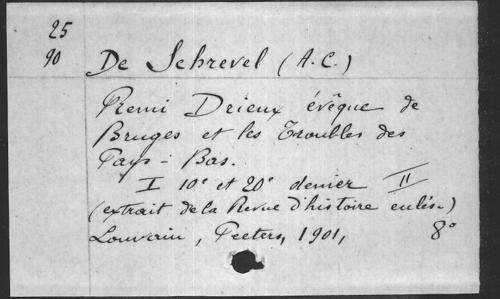 25
90
De Schrevel (A.C.)
Remi Drieux évêque de
Bruges et les Troubles des
Pays-Bas.
I 10e et 20e denier II
(extrait de la Revue d'histoire eclés.)
Louvain, Peeters, 1901, 8°